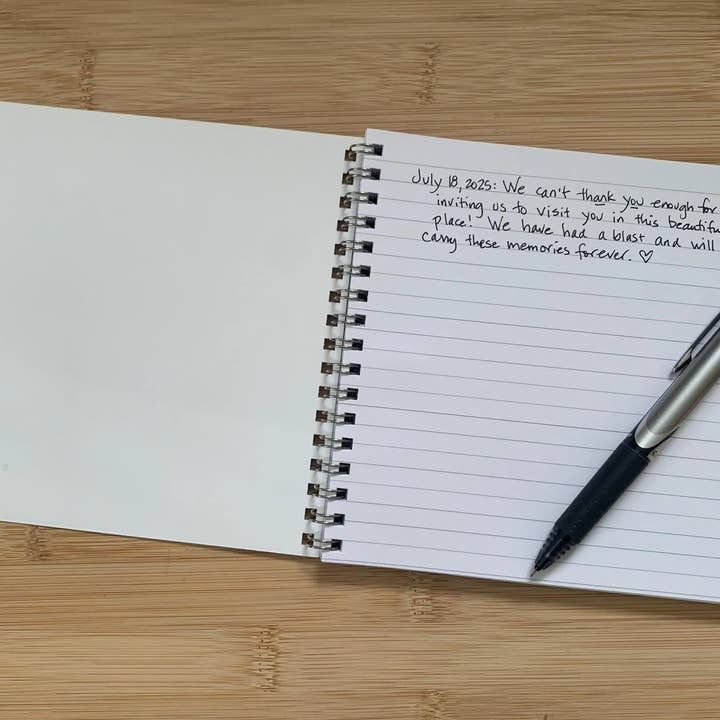 July 18, 2025: We can't thank you enough for
inviting us to visit you in this beautifu
place! We have had a blast and will
carry these memories forever. ♡